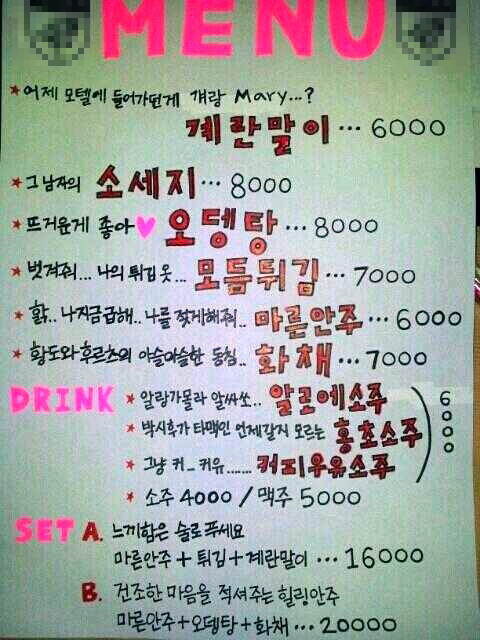 MENU
★어제 모텔에 들어가던게 걔랑 Mary...?
계란말이... 6000
★그 남자의 소세지... 8000
★뜨거운게 좋아♥ 오뎅탕... 8000
★벗겨줘... 나의 튀김옷... 모듬튀김... 7000
★핡.. 나지금급해.. 나를 젖게해줘.. 마른안주... 6000
★황도와후르츠의 아슬아슬한 동침.. 화채... 7000
DRINK ★알랑가몰라 알싸쏘.. 알로에소주
★박시후가 타백인 언제갈지 모르는 홍초소주
★그냥 커_커유....... 커피우유소주
6000
★소주 4000 / 맥주 5000
SET A. 느끼함은 술로푸세요
마른안주+튀김+계란말이 ... 16000
B. 건조한 마음을 적셔주는 힐링안주
마른안주+오뎅탕+화채... 20000